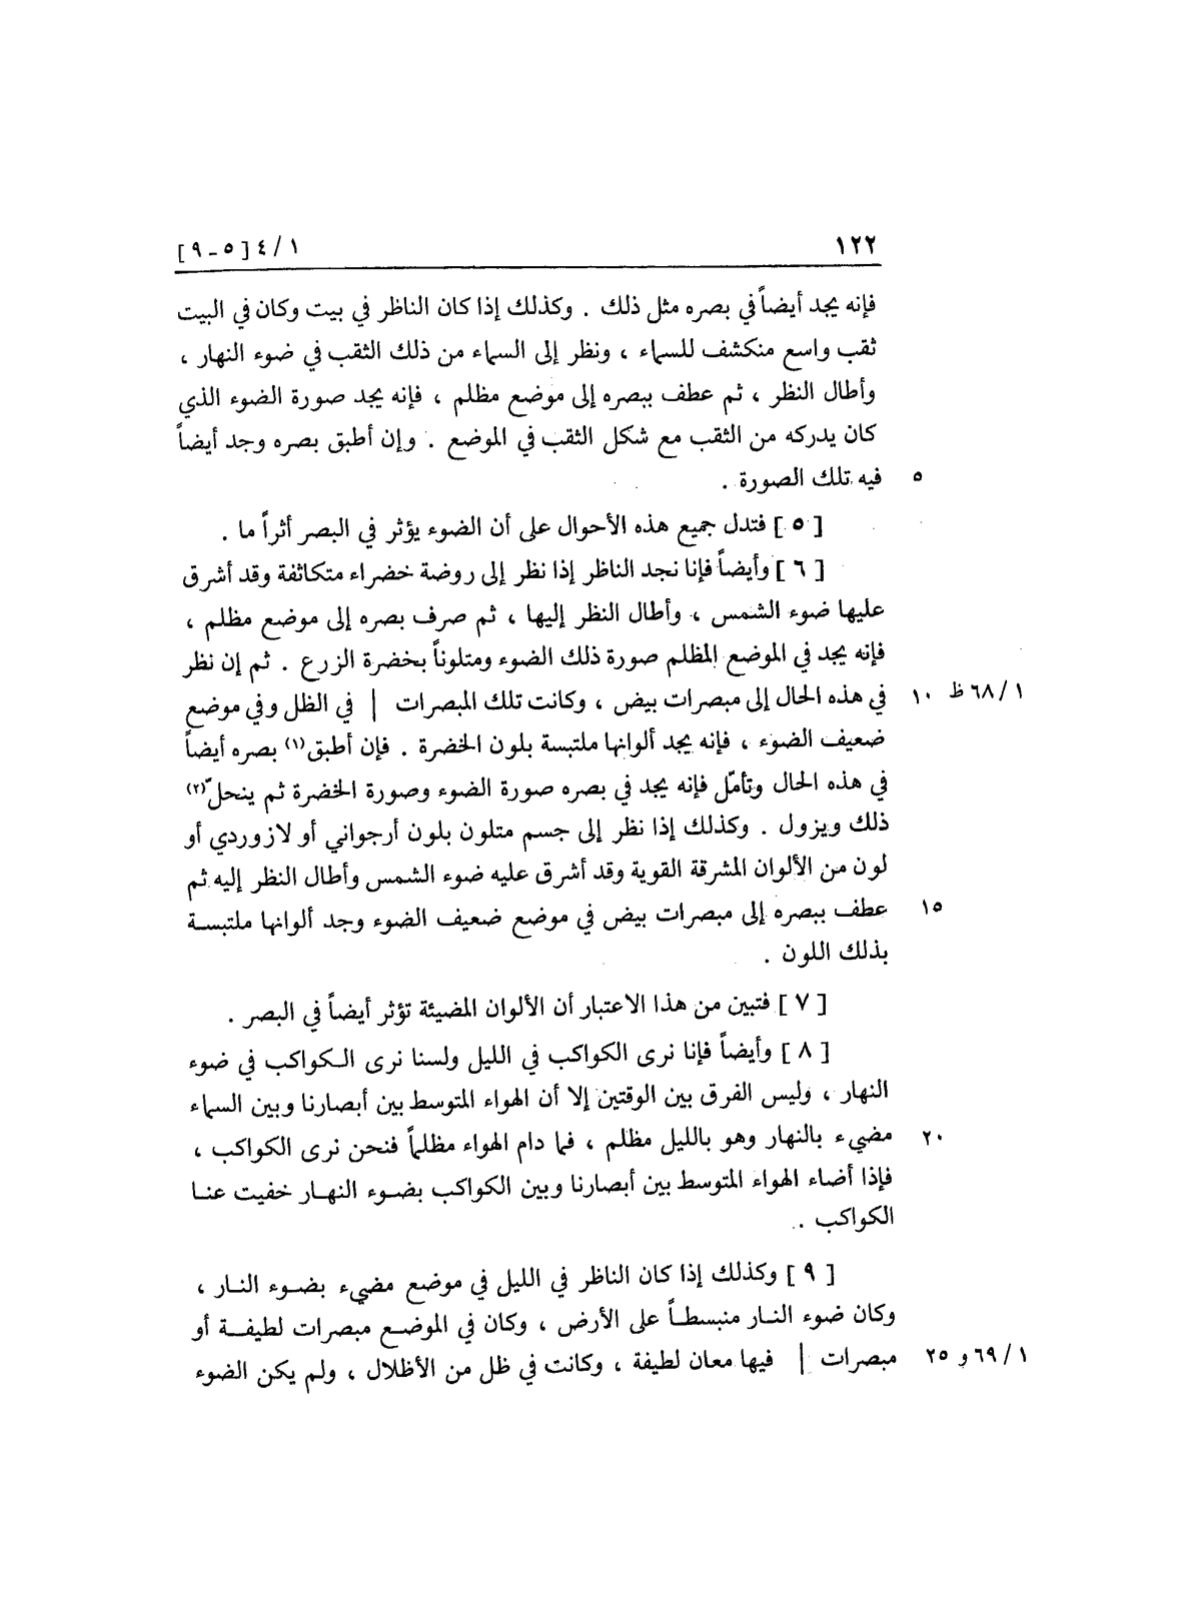 ١٢٢ ١ / ٤ [ ٥ - ٩ ]
فإنه يجد أيضاً في بصره مثل ذلك . وكذلك إذا كان الناظر في بيت وكان في البيت
ثقب واسع منكشف للسماء ، ونظر إلى السماء من ذلك الثقب في ضوء النهار ،
وأطال النظر ، ثم عطف ببصره إلى موضع مظلم ، فإنه يجد صورة الضوء الذي
كان يدركه من الثقب مع شكل الثقب في الموضع . وإن أطبق بصره وجد أيضاً
٥ فيه تلك الصورة .
[ ٥ ] فتدل جميع هذه الأحوال على أن الضوء يؤثر في البصر أثراً ما .
[ ٦ ] وأيضاً فإنا نجد الناظر إذا نظر إلى روضة خضراء متكاثفة وقد أشرق
عليها ضوء الشمس ، وأطال النظر إليها ، ثم صرف بصره إلى موضع مظلم ،
فإنه يجد في الموضع المظلم صورة ذلك الضوء ومتلوناً بخضرة الزرع . ثم إن نظر
١ / ٦٨ ظ ١٠ في هذه الحال إلى مبصرات بيض ، وكانت تلك المبصرات | في الظل وفي موضع
ضعيف الضوء ، فإنه يجد ألوانها ملتبسة بلون الخضرة . فإن أطبق(١) بصره أيضاً
في هذه الحال وتأمّل فإنه يجد في بصره صورة الضوء وصورة الخضرة ثم ينحلّ(٢)
ذلك ويزول . وكذلك إذا نظر إلى جسم متلون بلون أرجواني أو لازوردي أو
لون من الألوان المشرقة القوية وقد أشرق عليه ضوء الشمس وأطال النظر إليه ثم
١٥ عطف ببصره إلى مبصرات بيض في موضع ضعيف الضوء وجد ألوانها ملتبسة
بذلك اللون .
[ ٧ ] فتبين من هذا الاعتبار أن الألوان المضيئة تؤثر أيضاً في البصر .
[ ٨ ] وأيضاً فإنا نرى الكواكب في الليل ولسنا نرى الكواكب في ضوء
النهار ، وليس الفرق بين الوقتين إلا أن الهواء المتوسط بين أبصارنا وبين السماء
٢٠ مضيء بالنهار وهو بالليل مظلم ، فما دام الهواء مظلماً فنحن نرى الكواكب ،
فإذا أضاء الهواء المتوسط بين أبصارنا وبين الكواكب بضوء النهار خفيت عنا
الكواكب .
[ ٩ ] وكذلك إذا كان الناظر في الليل في موضع مضيء بضوء النار ،
وكان ضوء النار منبسطاً على الأرض ، وكان في الموضع مبصرات لطيفة أو
١ / ٦٩ و ٢٥ مبصرات | فيها معان لطيفة ، وكانت في ظل من الأظلال ، ولم يكن الضوء